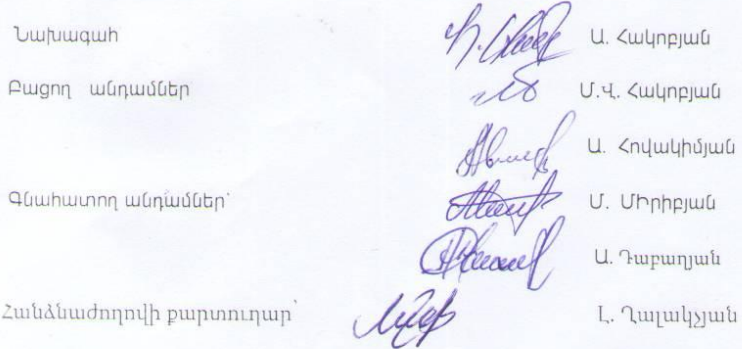 Նախագահ Ա. Հակոբյան
Բացող անդամներ Մ.Վ. Հակոբյան
Ա. Հովակիմյան
Գնահատող անդամներ՝ Մ. ՄԻրիբյան
Ա. Դաբաղյան
Հանձնաժողովի քարտուղար՝ Լ. Ղալակչյան